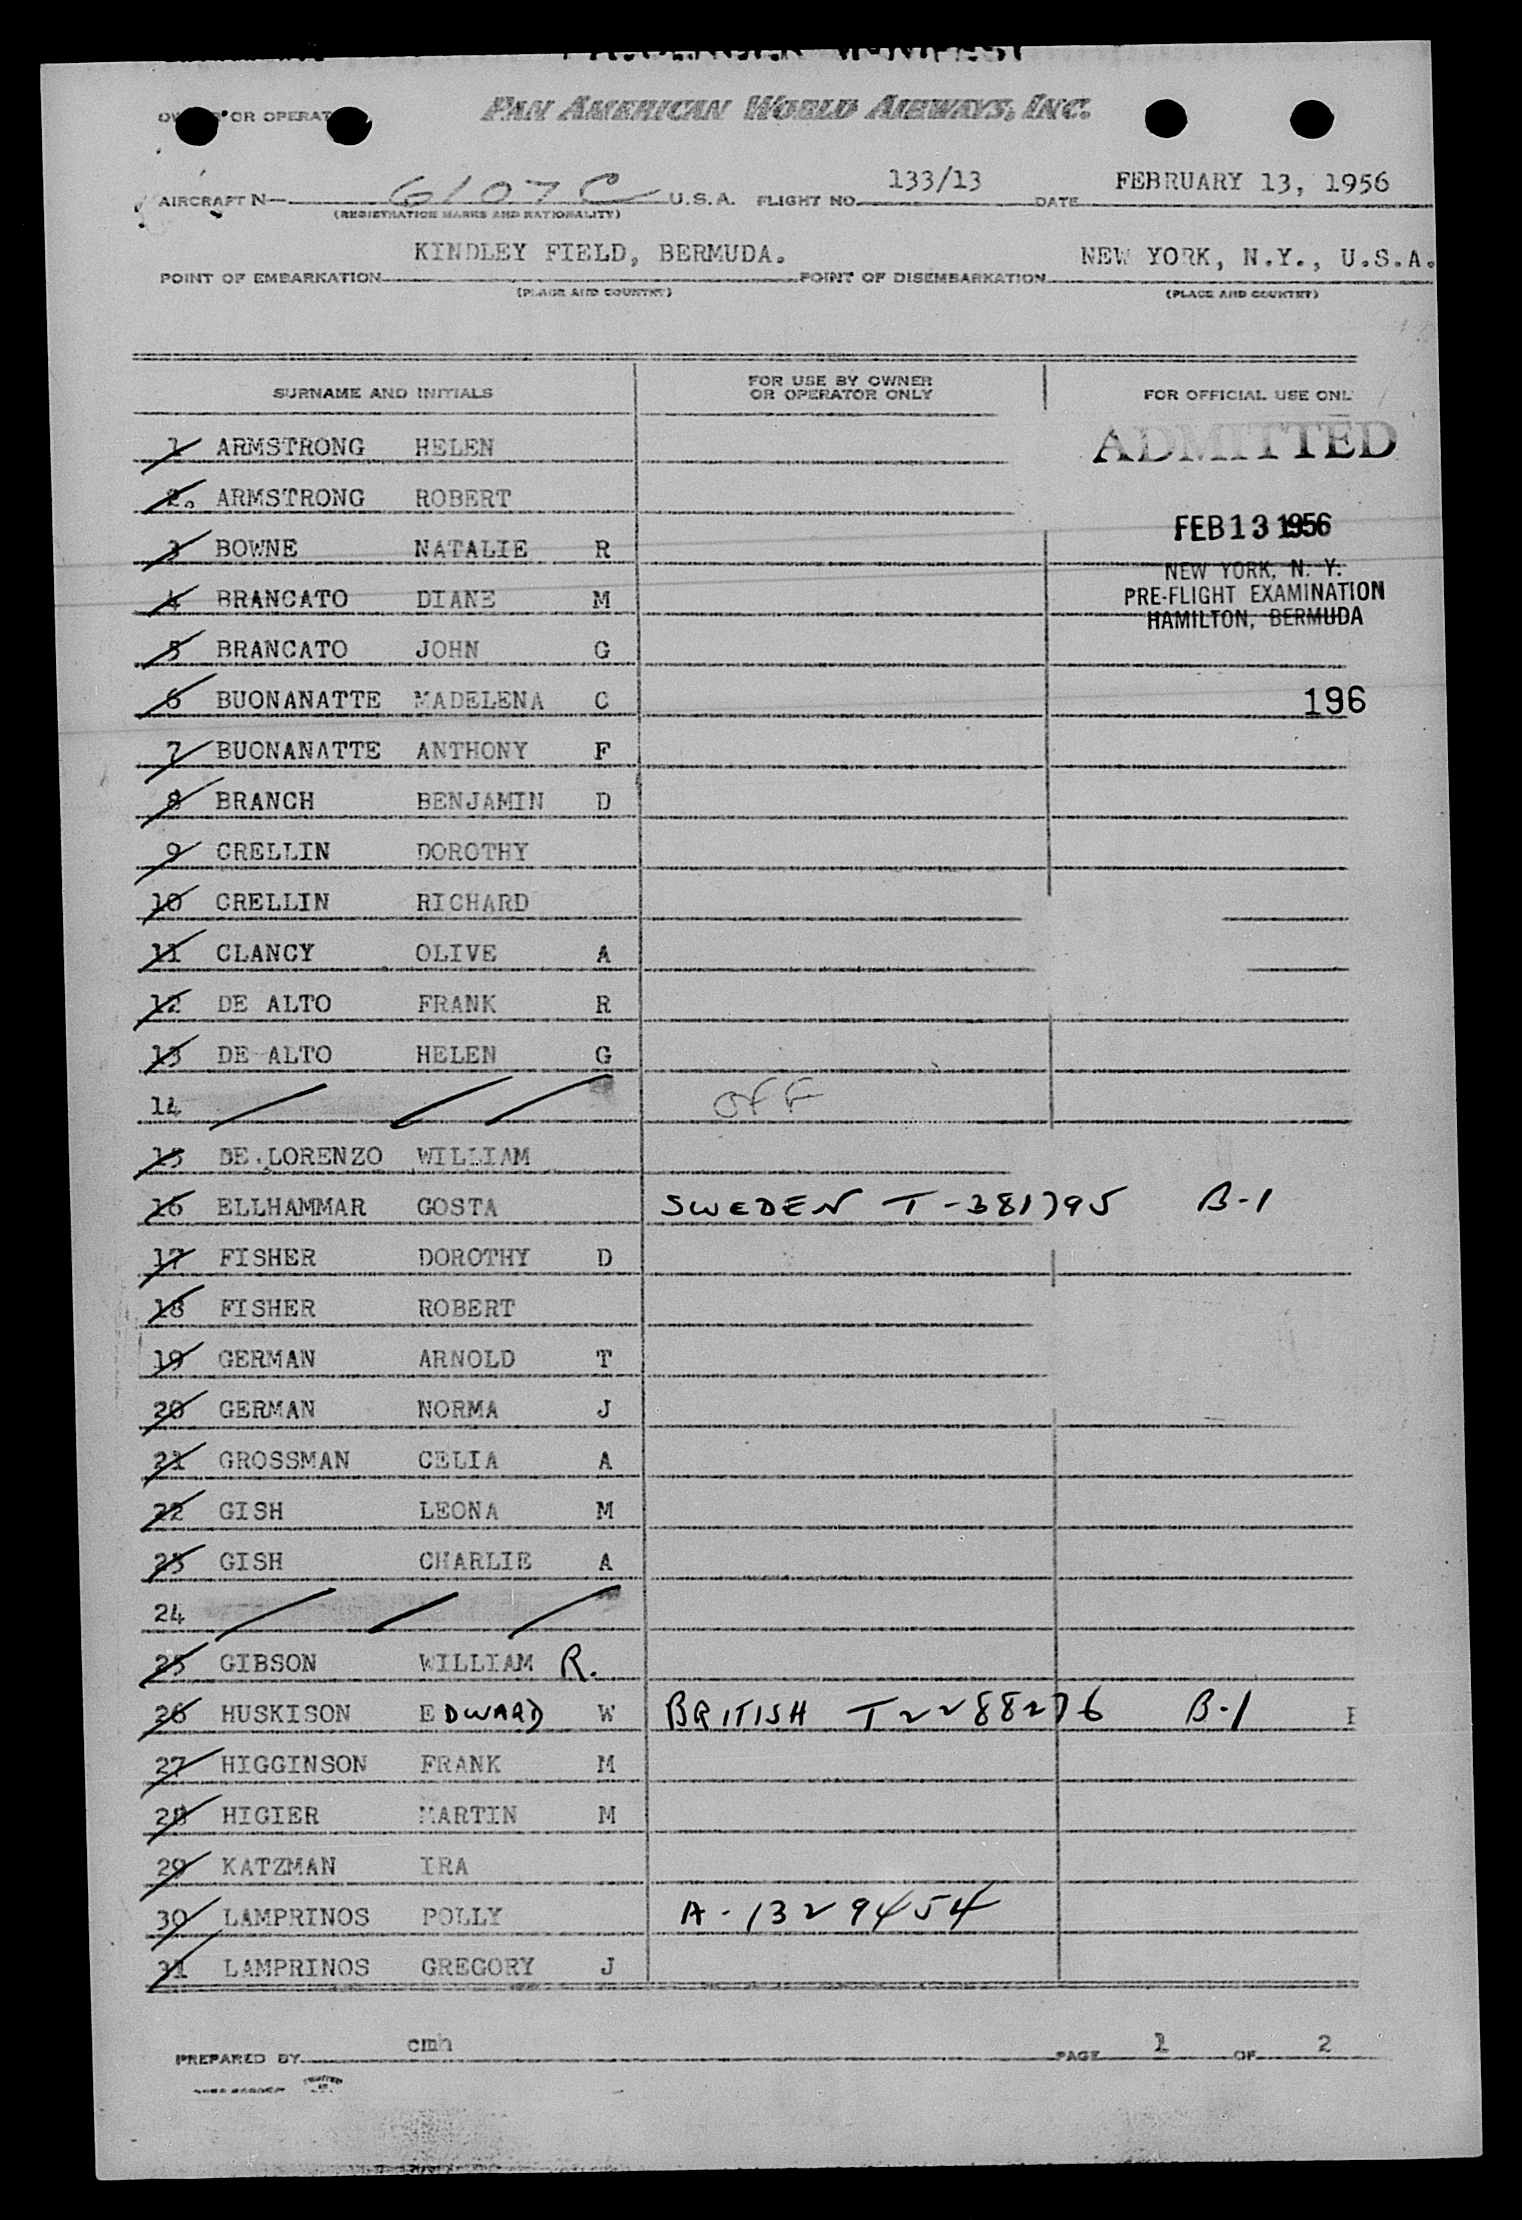 PASSENGER MANIFEST
OWNER OR OPERATOR PAN AMERICAN WORLD AIRWAYS, INC.
AIRCRAFT N— 6107C U.S.A. FLIGHT NO. 133/13 DATE FEBRUARY 13, 1956
(REGISTRATION MARKS AND NATIONALITY)
POINT OF EMBARKATION KINDLEY FIELD, BERMUDA. POINT OF DISEMBARKATION NEW YORK, N.Y., U.S.A.
(PLACE AND COUNTRY) (PLACE AND COUNTRY)
SURNAME AND INITIALS FOR USE BY OWNER OR OPERATOR ONLY FOR OFFICIAL USE ONL
1 ARMSTRONG HELEN ADMITTED
2. ARMSTRONG ROBERT
FEB 13 1956
3 BOWNE NATALIE R
NEW YORK, N. Y.
4 BRANCATO DIANE M PRE-FLIGHT EXAMINATION
HAMILTON, BERMUDA
5 BRANCATO JOHN G
6 BUONANATTE MADELENA C 196
7 BUONANATTE ANTHONY F
8 BRANCH BENJAMIN D
9 CRELLIN DOROTHY
10 CRELLIN RICHARD
11 CLANCY OLIVE A
12 DE ALTO FRANK R
13 DE ALTO HELEN G
14 OFF
15 DE LORENZO WILLIAM
16 ELLHAMMAR GOSTA SWEDEN T-381795 B-1
17 FISHER DOROTHY D
18 FISHER ROBERT
19 GERMAN ARNOLD T
20 GERMAN NORMA J
21 GROSSMAN CELIA A
22 GISH LEONA M
23 GISH CHARLIE A
24
25 GIBSON WILLIAM R.
26 HUSKISON EDWARD W BRITISH T2288276 B-1
27 HIGGINSON FRANK M
28 HIGIER MARTIN M
29 KATZMAN IRA
30 LAMPRINOS POLLY A-1329454
31 LAMPRINOS GREGORY J
PREPARED BY cmh PAGE 1 OF 2